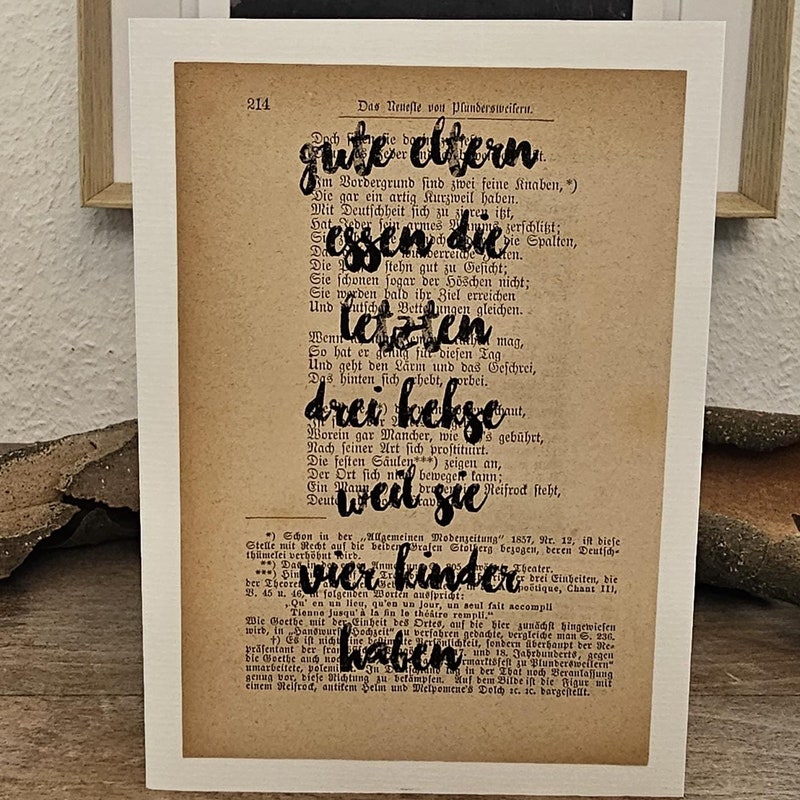 214
Das Neueste von Plundersweilern.
gute eltern
Im Vordergrund sind zwei feine Knaben,*)
Die gar ein artig Kurzweil haben.
Mit Deutschheit sich zu zieren itzt,
Hat Jeder sein armes zerschlitzt;
essen die
die Spalten,
Die stehn gut zu Gesicht;
Sie schonen sogar der Höschen nicht;
Sie werden bald ihr Ziel erreichen
Und gleichen.
letzten
Wenn mag,
So hat er genug für diesen Tag
Und geht den Lärm und das Geschrei,
Das hinten sich erhebt, vorbei.
drei kekse
Worein gar Mancher, wie gebührt,
Nach seiner Art sich prostituirt.
Die festen Säulen***) zeigen an,
Der Ort sich nicht bewegen kann;
Ein Mann Reifrock steht,
weil sie
*) Schon in der „Allgemeinen Modenzeitung" 1857, Nr. 12, ist diese
Stelle mit Recht auf die beiden Grafen Stolberg bezogen, deren Deutsch-
thümelei verhöhnt wird.
Theater.
drei Einheiten, die
vier kinder
der poétique, Chant III,
V. 45 u. 46, in folgenden Worten ausspricht:
„Qu' en un lieu, qu'en un jour, un seul fait accompli
Tienne jusqu'à la fin le théâtre rempli."
Wie Goethe mit der Einheit des Ortes, auf die hier zunächst hingewiesen
wird, in „Hanswursts Hochzeit" zu verfahren gedachte, vergleiche man S. 236.
†) Es ist nicht eine bestimmte Persönlichkeit, sondern überhaupt der Re-
präsentant der und 18. Jahrhunderts, gegen
haben
die Goethe auch noch zu Plundersweilern"
umarbeitete, In der That noch Veranlassung
genug vor, diese Richtung zu bekämpfen. Auf dem Bilde ist die Figur mit
einem Reifrock, antikem Helm und Melpomene's Dolch ꝛc. ꝛc. dargestellt.